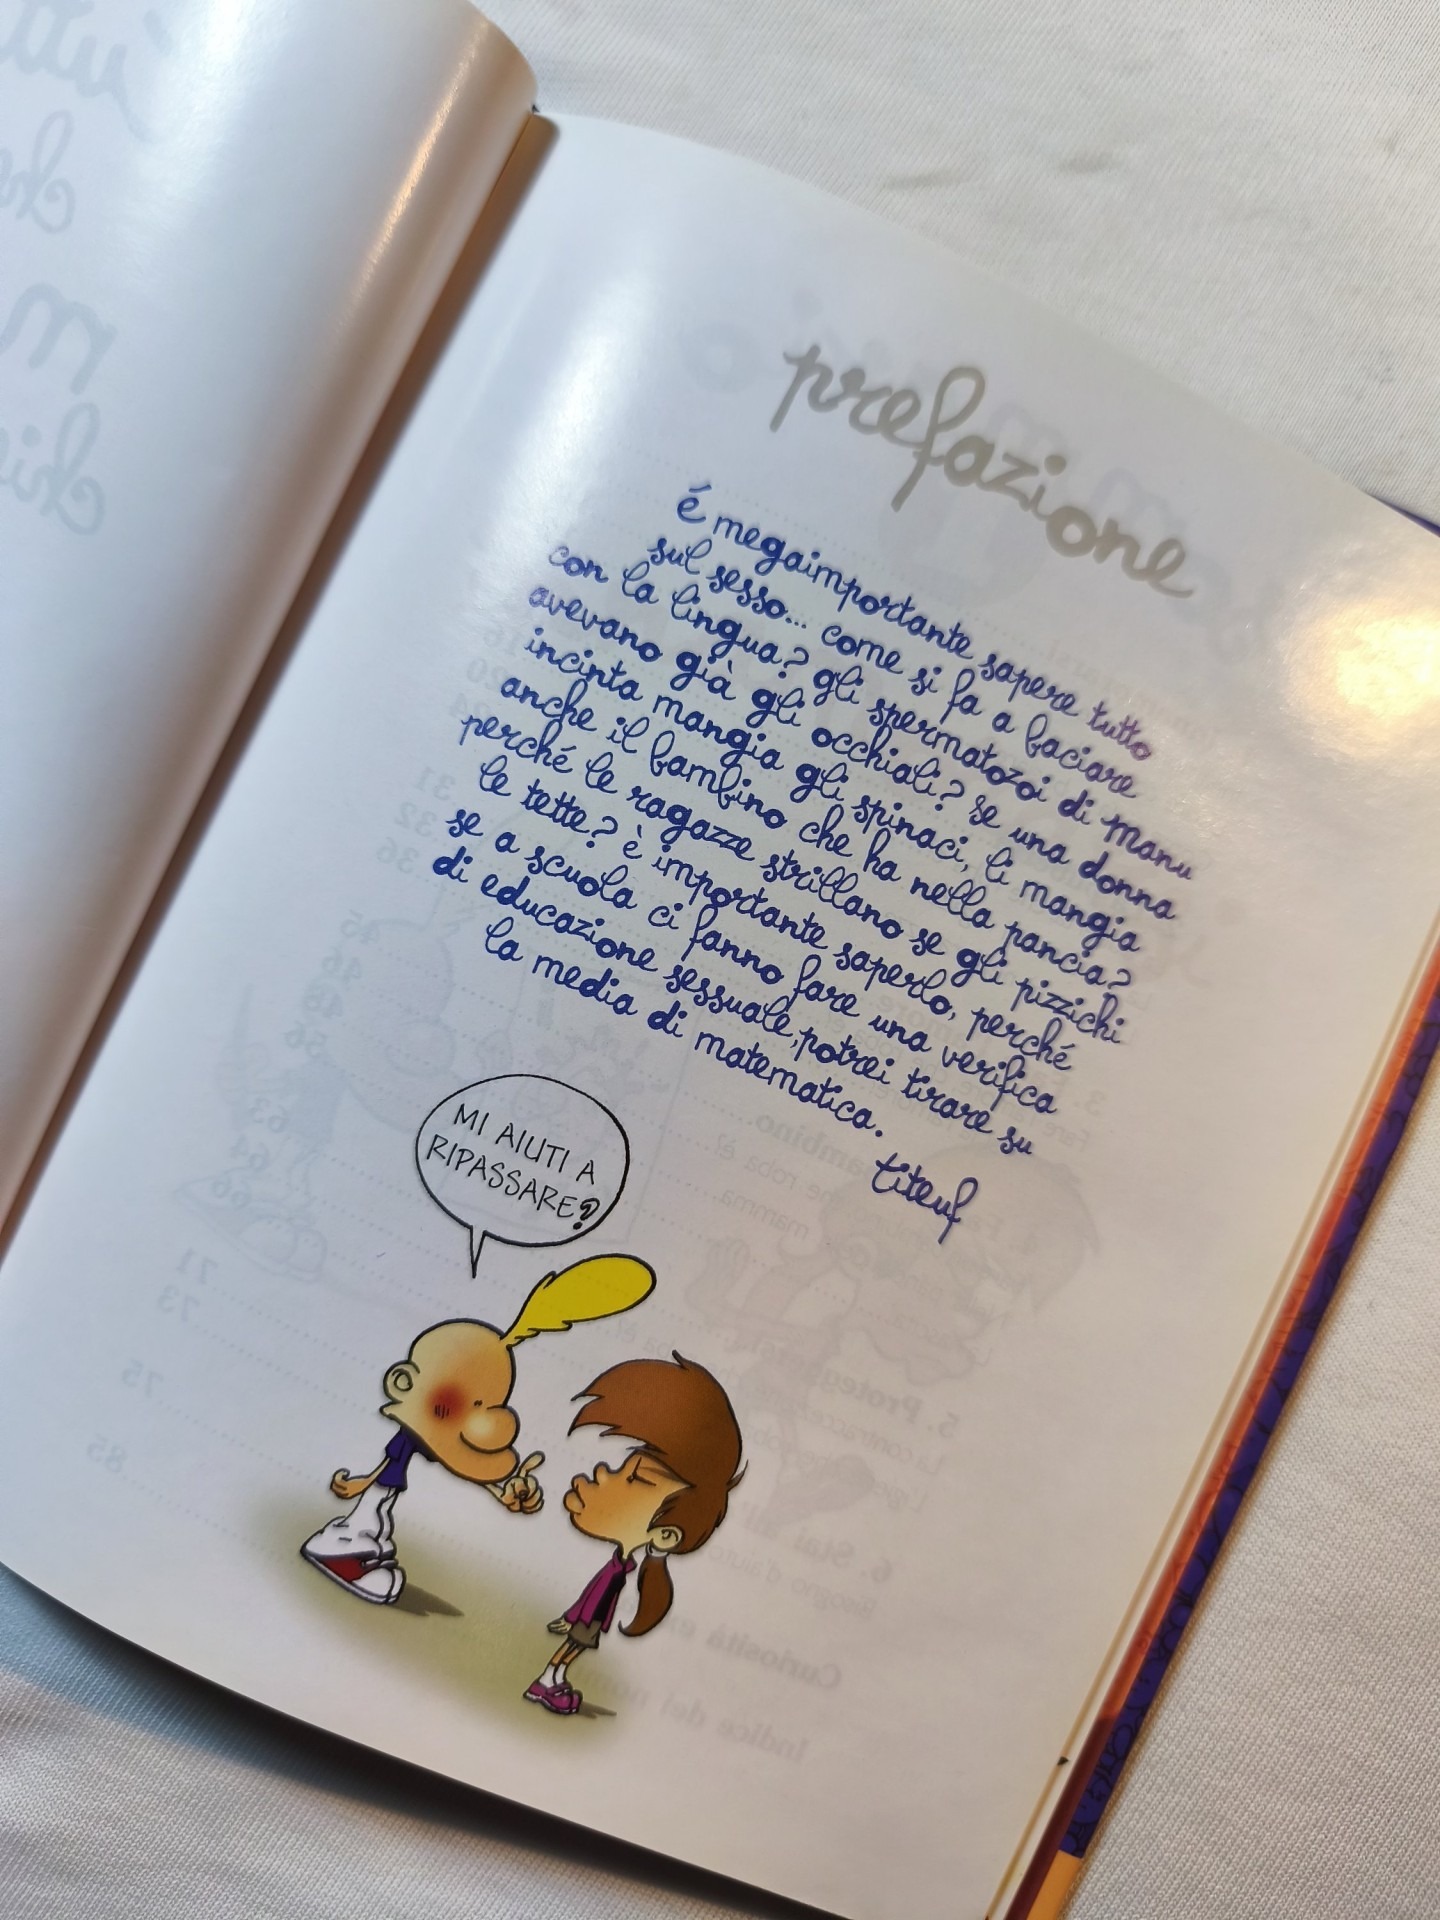 prefazione
é megaimportante sapere tutto
sul sesso... come si fa a baciare
con la lingua? gli spermatozoi di Manu
avevano già gli occhiali? se una donna
incinta mangia gli spinaci, li mangia
anche il bambino che ha nella pancia?
perché le ragazze strillano se gli pizzichi
le tette? è importante saperlo, perché
se a scuola ci fanno fare una verifica
di educazione sessuale, potrei tirare su
la media di matematica.
titeuf
MI AIUTI A
RIPASSARE?